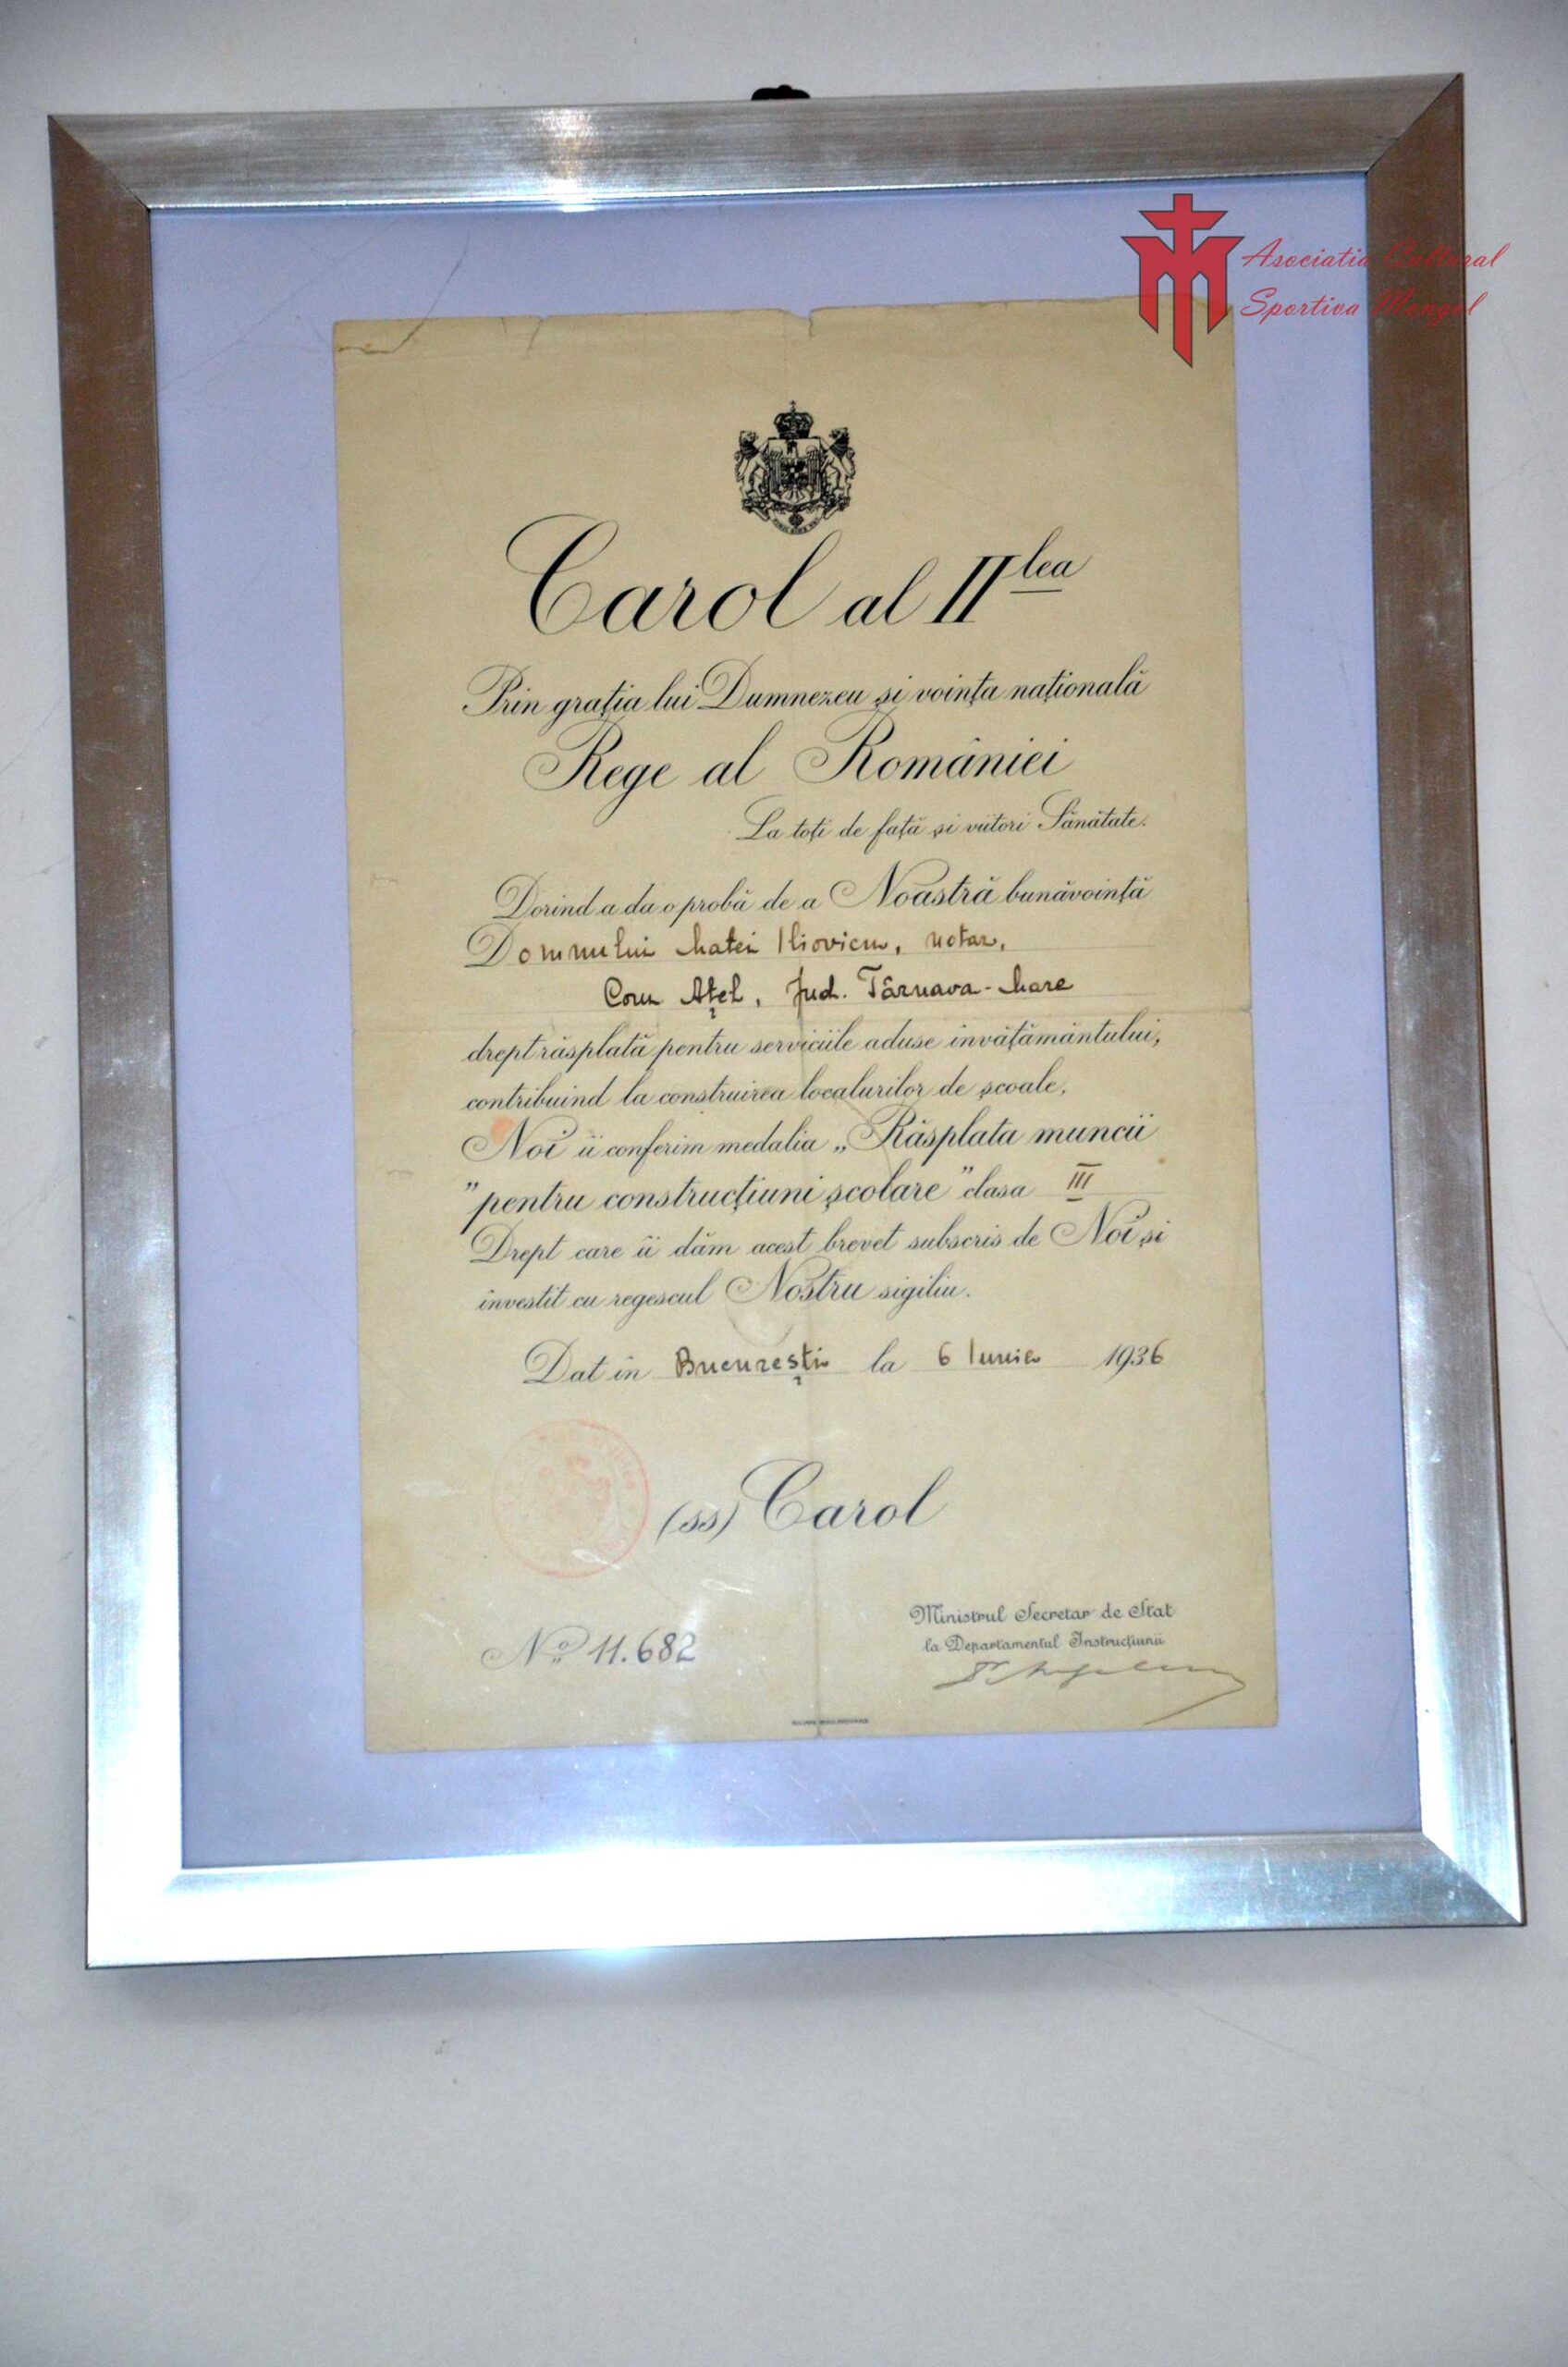 Asociatia Cultural
Sportiva Mongol
Carol al II lea
Prin grația lui Dumnezeu și voința națională
Rege al României
La toți de față și viitori Sănătate.
Dorind a da o probă de a Noastră bunăvoință
Domnului Matei Iliovicu, notar,
Com Ațel, Jud. Târnava-Mare
drept răsplată pentru serviciile aduse învățământului,
contribuind la construirea localurilor de școale,
Noi îi conferim medalia „Răsplata muncii
"pentru construcțiuni școlare" clasa III
Drept care îi dăm acest brevet subscris de Noi și
învestit cu regescul Nostru sigiliu.
Dat în București la 6 Iunie 1936
(ss) Carol
Ministrul Secretar de Stat
la Departamentul Instrucțiunii
No 11.682